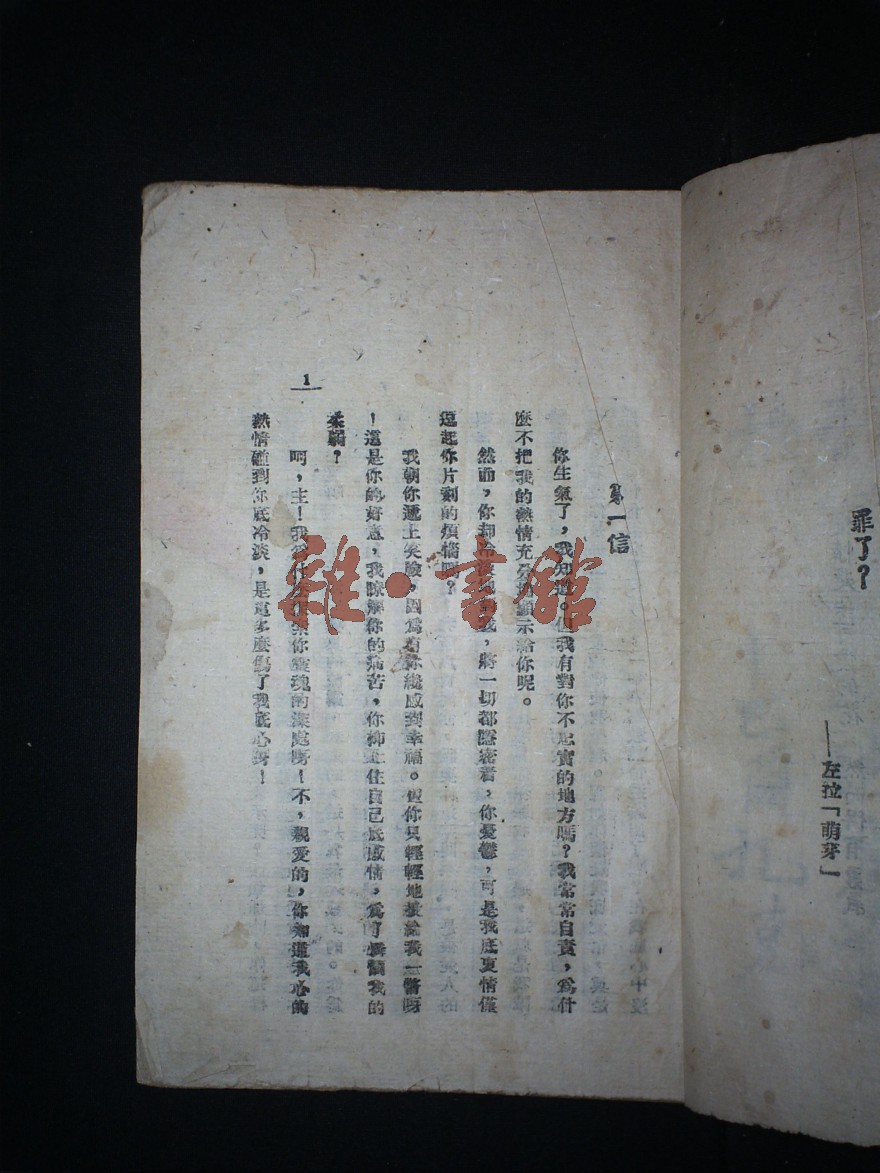 罪了?
——左拉「萌芽」
第一信
你生氣了,我知道。但我有對你不忠實的地方嗎?我常常自責,爲什
麼不把我的熱情充分顯示給你呢。
然而,你却冷淡地對我,將一切都隱密着,你憂鬱,可是我底衷情僅
逗起你片刻的煩惱嗎?
我朝你遞上笑臉,因爲有你纔感到幸福。但你只輕輕地投給我一瞥呀
!這是你的好意,我瞭解你的痛苦,你抑止住自己底感情,爲了憐憫我的
柔弱?
呵,主!我爲什麼很集你靈魂的深處呀!不,親愛的,你知道我心的
熱情碰到你底冷淡,是這多麼傷了我底心呀!
1
雜·書館